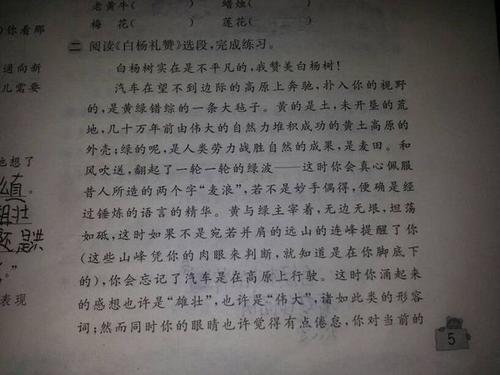 老黄牛(　　) 蜡烛(　　)
梅 花(　　) 莲花(　　)
你看那
二 阅读《白杨礼赞》选段，完成练习。
通向新
白杨树实在是不平凡的，我赞美白杨树！
儿需要
汽车在望不到边际的高原上奔驰，扑入你的视野
的，是黄绿错综的一条大毡子。黄的是土，未开垦的荒
地，几十万年前由伟大的自然力堆积成功的黄土高原的
外壳；绿的呢，是人类劳力战胜自然的成果，是麦田。和
也想了
风吹送，翻起了一轮一轮的绿波——这时你会真心佩服
值。
昔人所造的两个字“麦浪”，若不是妙手偶得，便确是经
壮
过锤炼的语言的精华。黄与绿主宰着，无边无垠，坦荡
是洪
如砥，这时如果不是宛若并肩的远山的连峰提醒了你
(这些山峰凭你的肉眼来判断，就知道是在你脚底下
”
的)，你会忘记了汽车是在高原上行驶。这时你涌起来
表现
的感想也许是“雄壮”，也许是“伟大”，诸如此类的形容
词；然而同时你的眼睛也许觉得有点倦怠，你对当前的
5